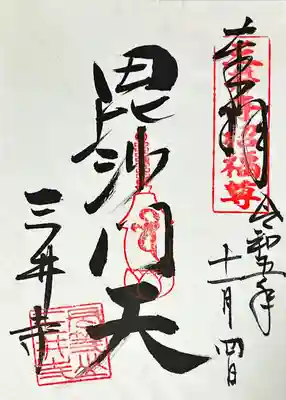 奉拝
令和五年
十一月四日
毘沙門天
三井寺